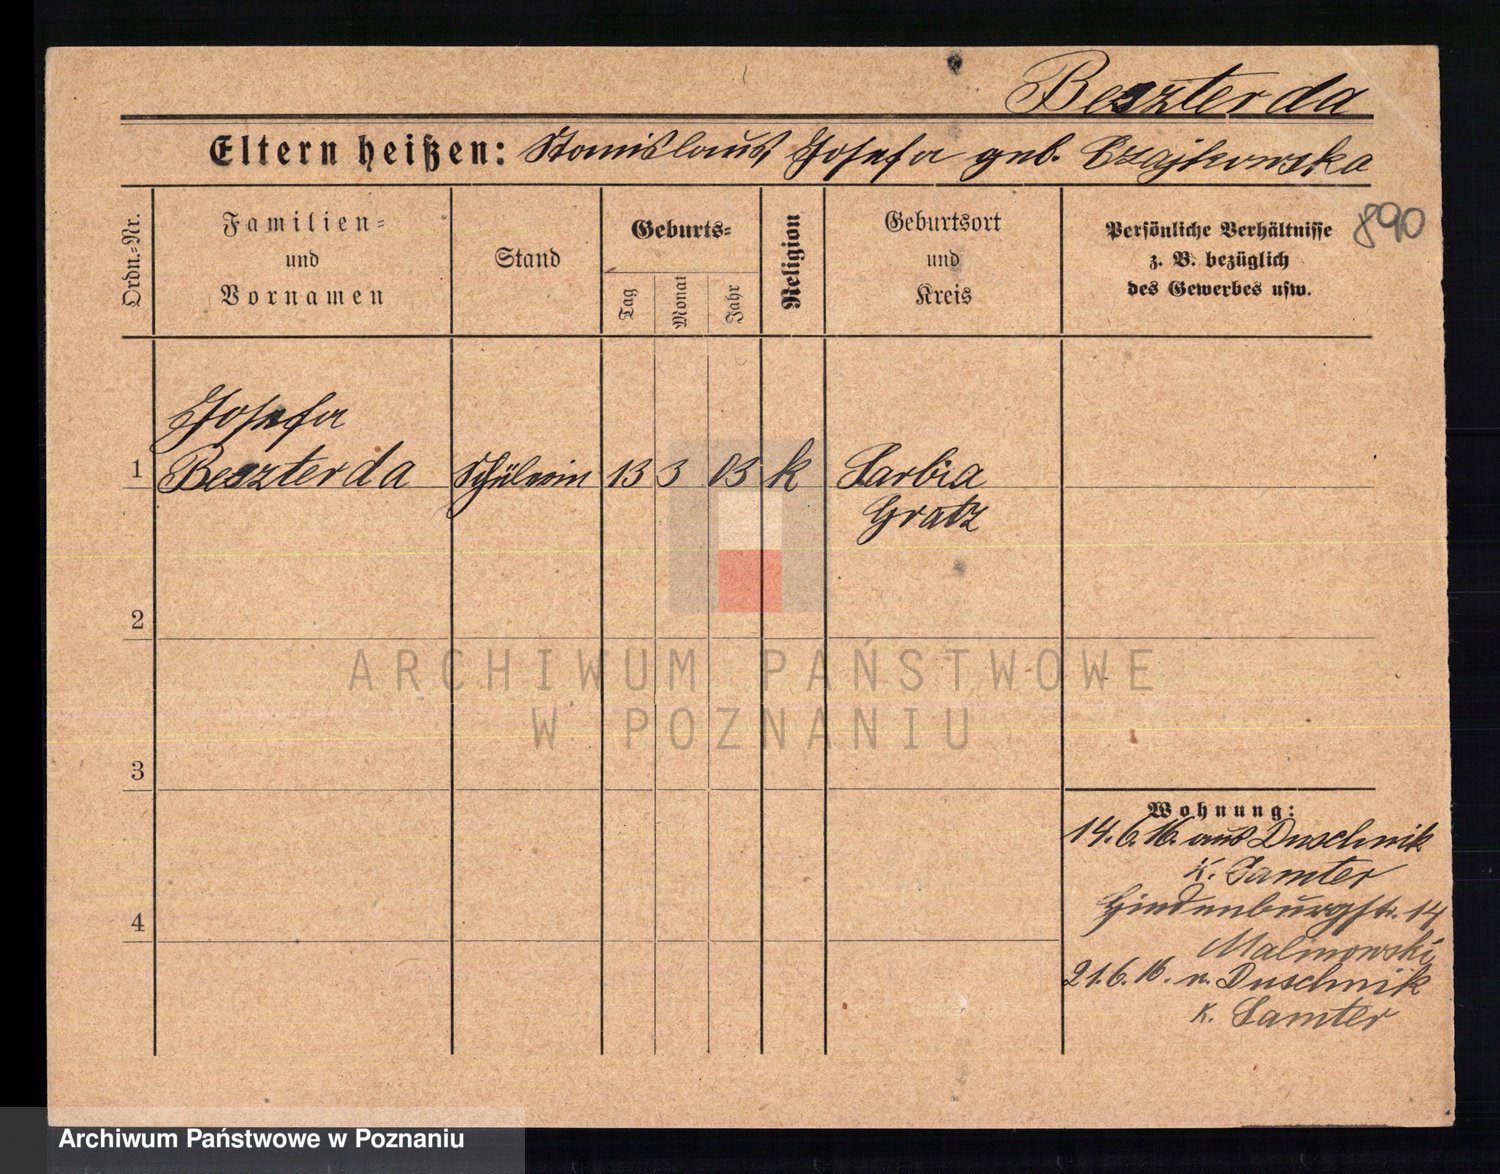 Beszterda
Eltern heißen: Stanislaus, Josefa geb. Czajkowska
890
Ordn.-Nr.
Familien-
und
Vornamen
Stand
Geburts-
Tag
Monat
Jahr
Religion
Geburtsort
und
Kreis
Persönliche Verhältnisse
z. B. bezüglich
des Gewerbes usw.
Josefa
1 Beszterda Schülerin 13 3 03 k Sarbia
Gratz
2
ARCHIWUM PAŃSTWOWE
W POZNANIU
3
Wohnung:
14.6.16. aus Duschnik
K. Samter
Hindenburgstr. 14
4
Malinowski
21.6.16. n. Duschnik
K. Samter
Archiwum Państwowe w Poznaniu